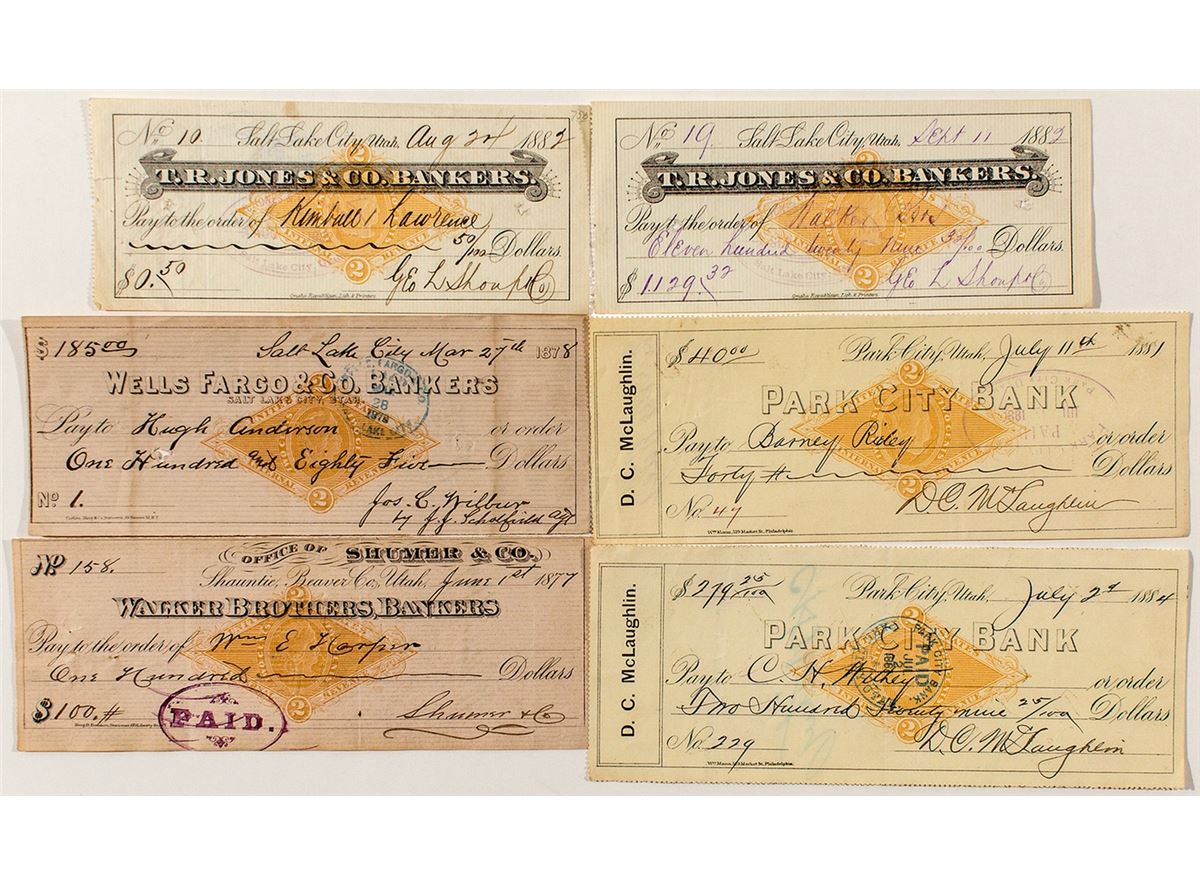 No 10. Salt Lake City, Utah, Aug 24 1882
T. R. JONES & CO. BANKERS.
Pay to the order of Kimball & Lawrence
50/100 Dollars.
$0.50 Geo L Shoup & Co
Omaha Republican, Lith. & Printers.
No 19. Salt Lake City, Utah, Sept 11 1882
T. R. JONES & CO. BANKERS.
Pay to the order of Walker Bros
Eleven hundred twenty nine 32/100 Dollars.
$1129.32 Geo L Shoup & Co
Omaha Republican, Lith. & Printers.
$185.00 Salt Lake City Mar 27th 1878
WELLS FARGO & CO. BANKERS
SALT LAKE CITY, UTAH.
Pay to Hugh Anderson or order
One Hundred and Eighty Five Dollars
No 1. Jos. C. Wilbur
by J. J. Scholfield agt
28
1878
$40.00 Park City, Utah, July 11th 1881
D. C. McLaughlin.
PARK CITY BANK
Pay to Barney Riley or order
Forty # Dollars
No. 47 D. C. McLaughlin
Wm Mann, 529 Market St. Philadelphia.
OFFICE OF SHUMER & CO.
No 158. Shauntie, Beaver Co, Utah, June 1st 1877
WALKER BROTHERS, BANKERS
Pay to the order of Wm E Harper
One Hundred Dollars
$100.# Shumer & Co
PAID.
$279 25/100 Park City, Utah, July 2d 1884
D. C. McLaughlin.
PARK CITY BANK
PARK CITY BANK
PAID
Pay to C. H. or order
Two Hundred Seventy nine 25/100 Dollars
No. 229 D. C. McLaughlin
Wm Mann, 529 Market St. Philadelphia.